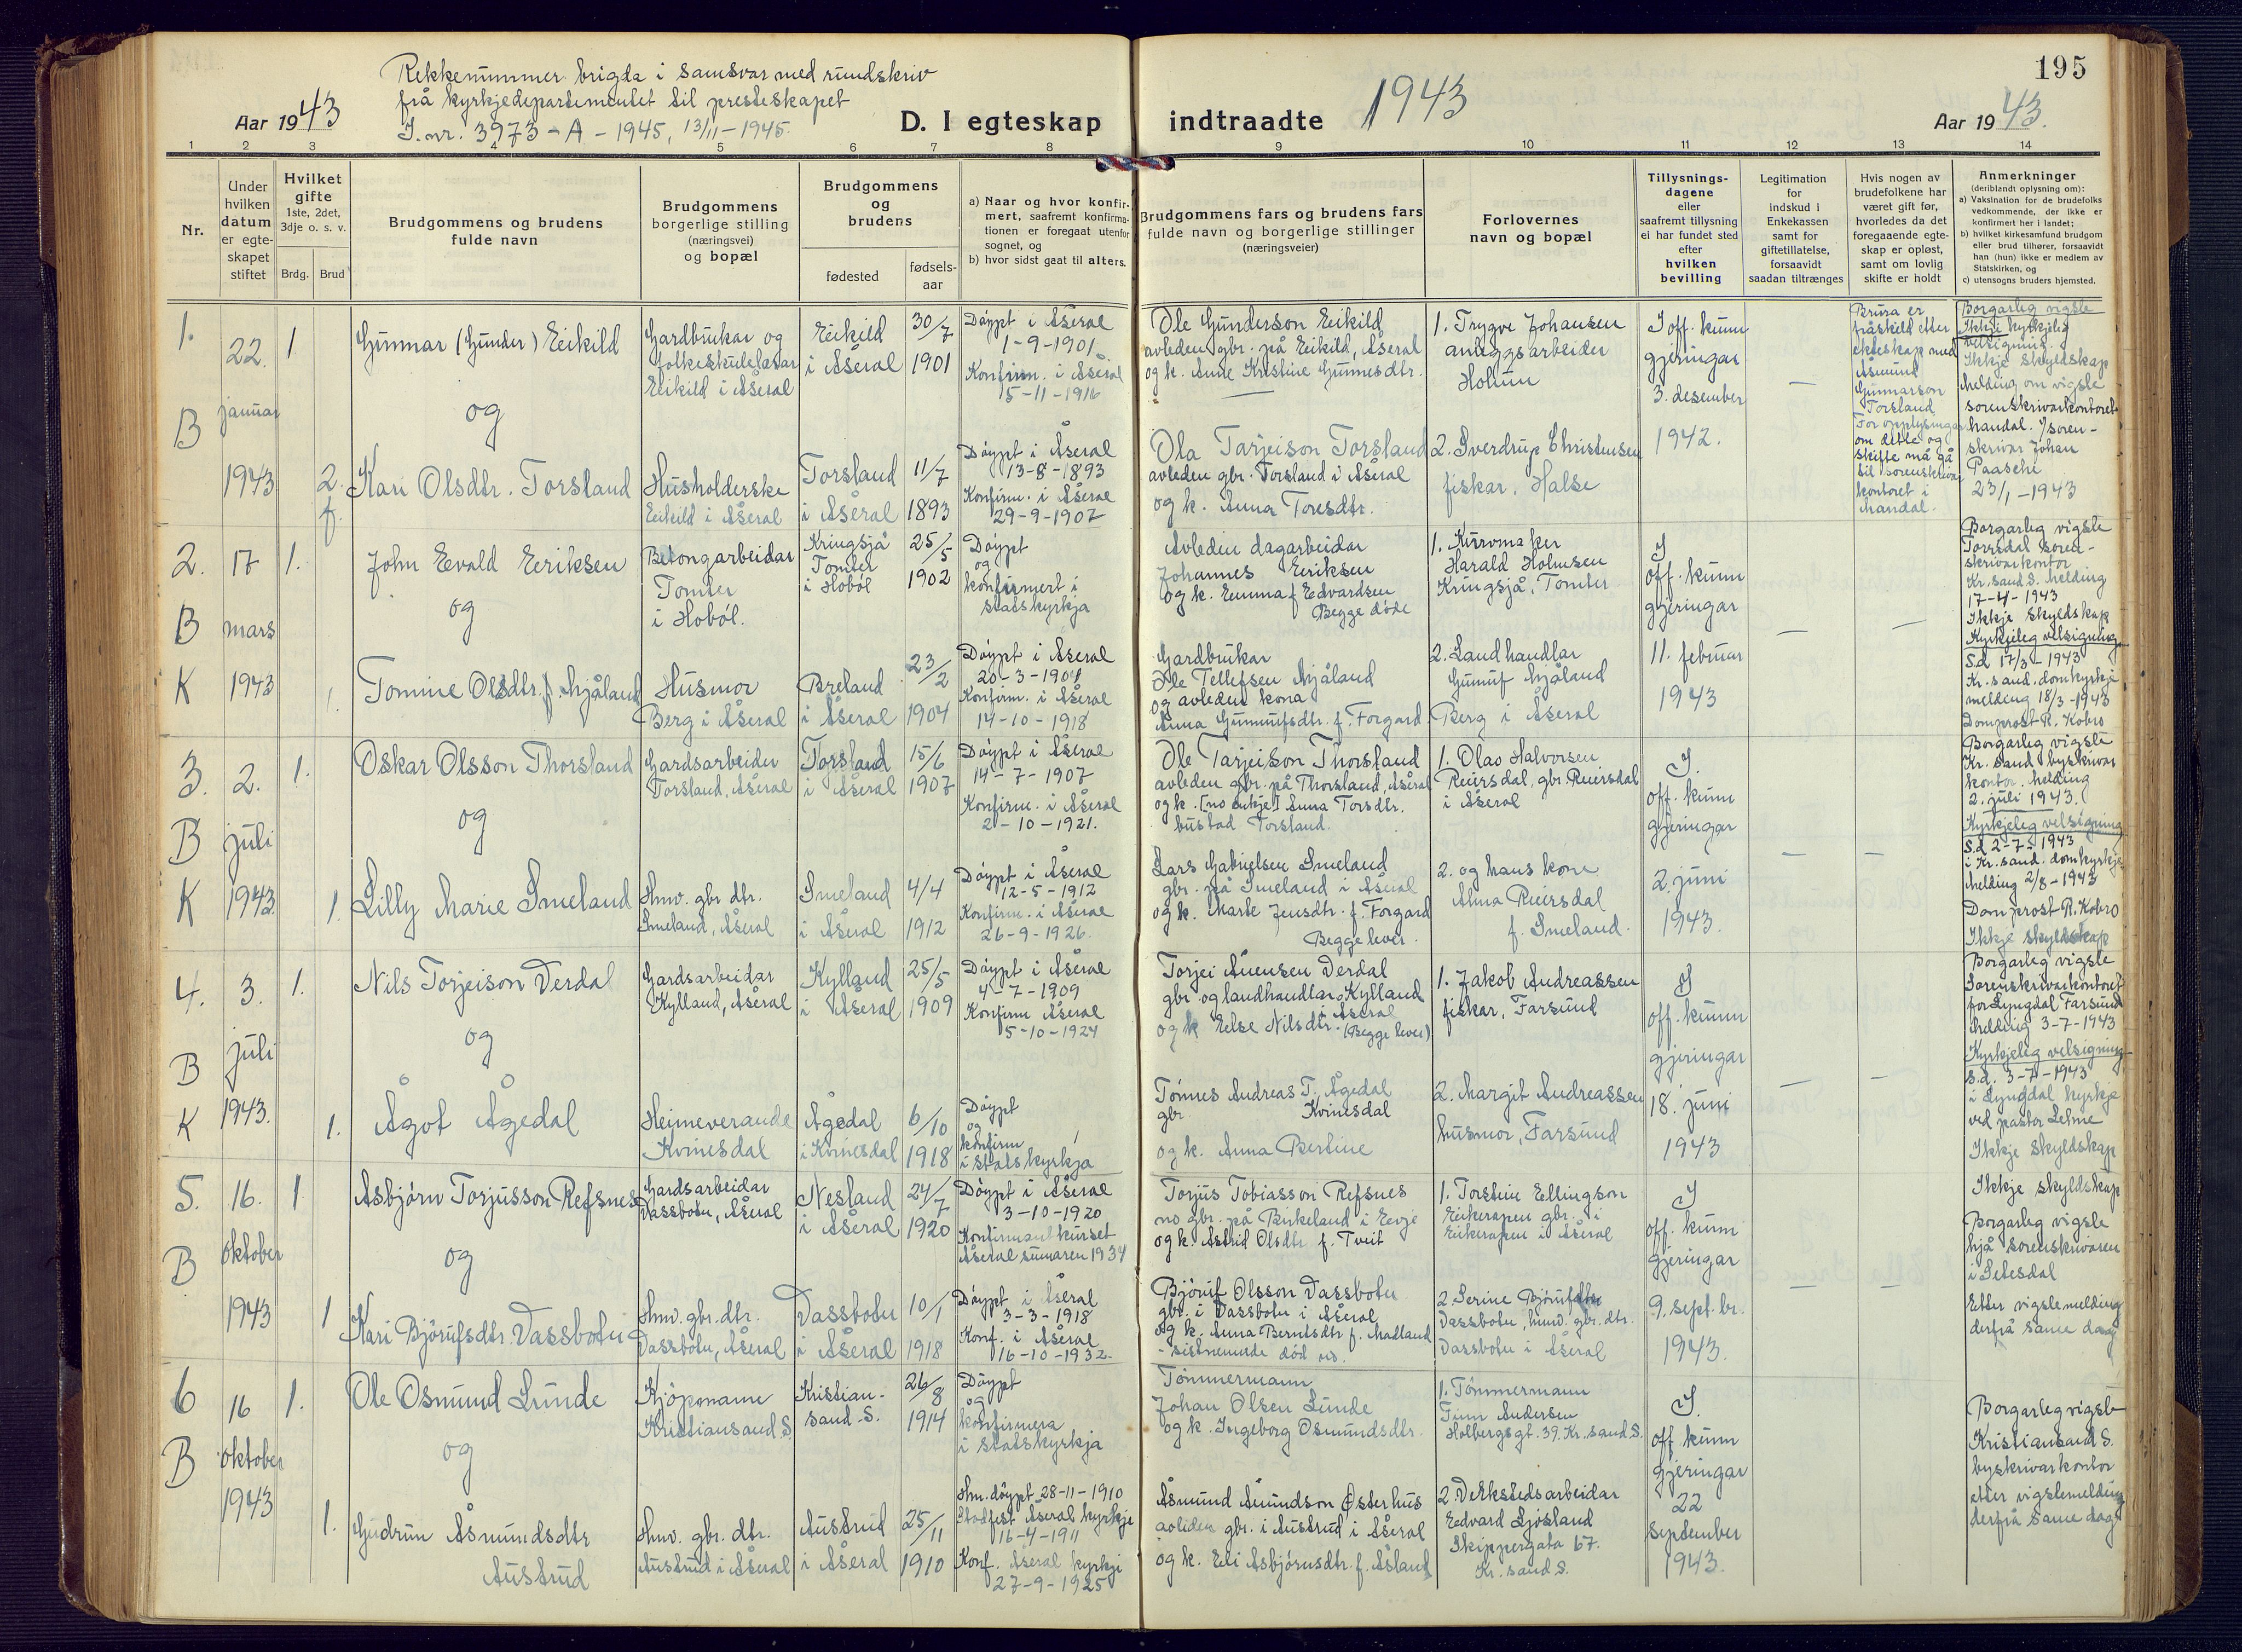 195
Rekkenummer brigda i samsvar med rundskriv
frå kyrkjedepartementet til presteskapet
J.nr. 3973 - A - 1945, 13/11 - 1945.
Aar 1943
D. I egteskap indtraadte
1943
Aar 1943.
1 2 3 4 5 6 7 8 9 10 11 12 13 14
Nr.
Under
hvilken
datum
er egte-
skapet
stiftet
Hvilket
gifte
1ste, 2det,
3dje o. s. v.
Brdg. Brud
Brudgommens og brudens
fulde navn
Brudgommens
borgerlige stilling
(næringsvei)
og bopæl
Brudgommens
og
brudens
fødested
fødsels-
aar
a) Naar og hvor konfir-
mert, saafremt konfirma-
tionen er foregaat utenfor
sognet, og
b) hvor sidst gaat til alters.
Brudgommens fars og brudens fars
fulde navn og borgerlige stillinger
(næringsveier)
Forlovernes
navn og bopæl
Tillysnings-
dagene
eller
saafremt tillysning
ei har fundet sted
efter
hvilken
bevilling
Legitimation
for
indskud i
Enkekassen
samt for
giftetillatelse,
forsaavidt
saadan tiltrænges
Hvis nogen av
brudefolkene har
været gift før,
hvorledes da det
foregaaende egte-
skap er opløst,
samt om lovlig
skifte er holdt
Anmerkninger
(deriblandt oplysning om):
a) Vaksination for de brudefolks
vedkommende, der ikke er
konfirmert her i landet;
b) hvilket kirkesamfund brudgom
eller brud tilhører, forsaavidt
han (hun) ikke er medlem av
Statskirken, og
c) utensogns bruders hjemsted.
1.
B
22.
januar
1943
1
Gunnar (Gunder) Eikild
Gardbrukar og
folkeskulelærar
Eikild i Åseral
Eikild
i Åseral
30/7
1901
Döypt i Åseral
1-9-1901
Konfirm. i Åseral
5-11-1916
Ole Gunderson Eikild
avleden gbr. på Eikild, Åseral
og k. Anne Kristine Gunnesdtr.
1. Trygve Johansen
anleggsarbeider
Holum
I off. kunn
gjeringar
3. desember
1942.
—
Brura er
fråskild etter
ekteskap med
Åsmund
Gunnarson
Torsland
For opplysingar
om dette og
skifte må gå
til sorenskrivar
kontoret i
Mandal.
Borgarleg vigsle
Ikkje kyrkjeleg
velsigning.
Ikkje skyldskap
Melding om vigsle
sorenskrivarkontoret
Mandal. v/soren-
skrivar Johan
Paasche
23/1 - 1943
og
2.
f.
Kari Olsdtr. Torsland
Husholderske
Eikild i Åseral
Torsland
i Åseral
11/7
1893
Döypt i Åseral
13-8-1893
Konfirm. i Åseral
29-9-1907
Ola Tarjeison Torsland
avleden gbr. Torsland i Åseral
og k. Anna Toresdtr.
2. Sverdrup Christensen
fiskar. Halse
2.
B
K
17
mars
1943
1.
John Evald Eriksen
Betongarbeidar
Tomter
i Hoböl.
Kringsjå
Tomter
i Hoböl
25/5
1902
Döypt
og
konfirmert i
statskyrkja
Avleden dagarbeidar
Johannes Eriksen
og k. Emma f. Edvardsen
Begge döde
1. Kurvmaker
Harald Holmsen
Kringsjå, Tomter
I
off. kunn
gjeringar
11. februar
1943
—
—
Borgarleg vigsle
Torrsdal soren-
skrivarkontor
Kr.sand S. Melding
17-4-1943
Ikkje skyldskap
Kyrkjeleg velsigning
s.d. 17/3-1943
Kr.sand. domkyrkje
melding 18/3-1943
Domprost R. Kobro
og
1.
Tomine Olsdtr. f. Mjåland
Husmor
Berg i Åseral
Breland
i Åseral
23/2
1904
Döypt i Åseral
20-3-1904
Konfirm. i Åseral
14-10-1918
Gardbrukar
Ole Tellefsen Mjåland
og avleden kona
Anna Gunnufsdtr. f. Forgard
2. Landhandlar
Gunuf Mjåland
Berg i Åseral
3.
B
K
2.
juli
1943
1.
Oskar Olsson Thorsland
Gardsarbeider
Torsland, Åseral
Torsland
i Åseral
15/6
1907
Döypt i Åseral
14-7-1907
Konfirm. i Åseral
2-10-1921.
Ole Tarjeison Thorsland
avleden gbr. på Thorsland, Åseral
og k. [no enkje] Anna Torsdtr.
bustad Torsland.
1. Olav Halvorsen
Reiersdal, gbr. Reiersdal
i Åseral
I.
off. kunn
gjeringar
2. juni
1943.
—
—
Borgarleg vigsle
Kr.sand byskrivar
kontor. Melding
2. juli 1943.
Kyrkjeleg velsigning
s.d. 2-7-1943
i Kr.sand. domkyrkje
Melding 2/8-1943
Domprost R. Kobro
Ikkje skyldskap
og
1.
Lilly Marie Smeland
Hmv. gbr. dtr.
Smeland, Åseral
Smeland
i Åseral
4/4
1912
Döypt i Åseral
12-5-1912
Konfirm. i Åseral
26-9-1926.
Lars Gabrielsen Smeland
gbr. på Smeland i Åseral
og k. Marte Jensdtr. f. Forgard
Begge lever.
2. og hans kone
Alma Reiersdal
f. Smeland.
4.
B
K
3.
juli
1943.
1.
Nils Torjeison Verdal
Gardsarbeidar
Kylland, Åseral
Kylland
i Åseral
25/5
1909
Döypt i Åseral
4-7-1909
Konfirm Åseral
5-10-1924
Torjei Auensen Verdal
gbr. og landhandlar, Kylland
i Åseral
og k Else Nilsdtr. (Begge lever)
1. Jakob Andreassen
fiskar, Farsund
I
off. kunn
gjeringar
18. juni
1943
—
—
Borgarleg vigsle
Sorenskrivarkontoret
for Lyngdal Farsund
Melding 3-7-1943
Kyrkjeleg velsigning
s.d. 3-7-1943
i Lyngdal kyrkje
ved pastor Lehne
Ikkje skyldskap
og
1.
Ågot Ågedal
Heimeverande
Kvinesdal
Ågedal
i Kvinesdal
6/10
1918
Döypt
og
konfirm
i statskyrkja
Tönnes Andreas T. Ågedal
gbr. Kvinesdal
og k. Anna Bertine
2. Margit Andreassen
husmor, Farsund
5.
B
16.
oktober
1943
1
Asbjörn Torjusson Refsnes
Gardsarbeidar
Vassbotn, Åseral
Nesland
i Åseral
24/7
1920
Döypt i Åseral
3-10-1920
Konfirmantkurset
Åseral sumaren 1934
Torjus Tobiasson Refsnes
no gbr. på Birkeland i Evje
og k. Astrid Olsdtr f. Tveit
1. Torstein Ellingson
Eikerapen gbr. i
Eikerapen i Åseral
I
off. kunn
gjeringar
9. sept.br.
1943.
—
—
Ikkje skyldskap
Borgarleg vigsle
hjå sorenskrivaren
i Setesdal
Etter vigslemelding
derfrå same dag
og
1
Kari Björufsdtr. Vassbotn
Hmv. gbr. dtr.
Vassbotn, Åseral
Vassbotn
i Åseral
10/1
1918
Döypt i Åseral
3-3-1918
Konf. i Åseral
16-10-1932-
Björuf Olsson Vassbotn
gbr. i Vassbotn i Åseral
og k. Anna Berntsdtr f. Madland
- sistnemnde död no.
2. Serine Björufdtr
Vassbotn, hmv. gbr. dtr.
Vassbotn i Åseral
6
B
16
oktober
1943
1.
Ole Osmund Lunde
Kjöpmann
Kristiansand S.
Kristian-
sand. S.
26/8
1914
Döypt
og
konfirmera
i statskyrkja
Tömmermann
Johan Olsen Lunde
og k. Ingeborg Osmundsdtr.
1. Tömmermann
Finn Andersen
Holbergsgt. 39. Kr.sand S.
I.
off. kunn
gjeringar
22
september
1943.
Borgarleg vigsle
Kristiansand S.
byskrivarkontor
etter vigslemelding
derfrå same dag
og
1.
Gudrun Åsmundsdtr
Austrud
Hmv. gbr. dtr.
Austrud i Åseral
Austrud
i Åseral
25/11
1910
Hm. döypt 28-11-1910
Stadfest Åseral kyrkje
16-4-1911
Konf. Åseral kyrkje
27-9-1925
Åsmund Åmundson Österhus
avliden gbr. i Austrud i Åseral
og k. Eli Asbjörnsdtr. f. Åsland
2. Verkstedsarbeidar
Edvard Ljosland
Skippergata 67.
Kr.sand S.